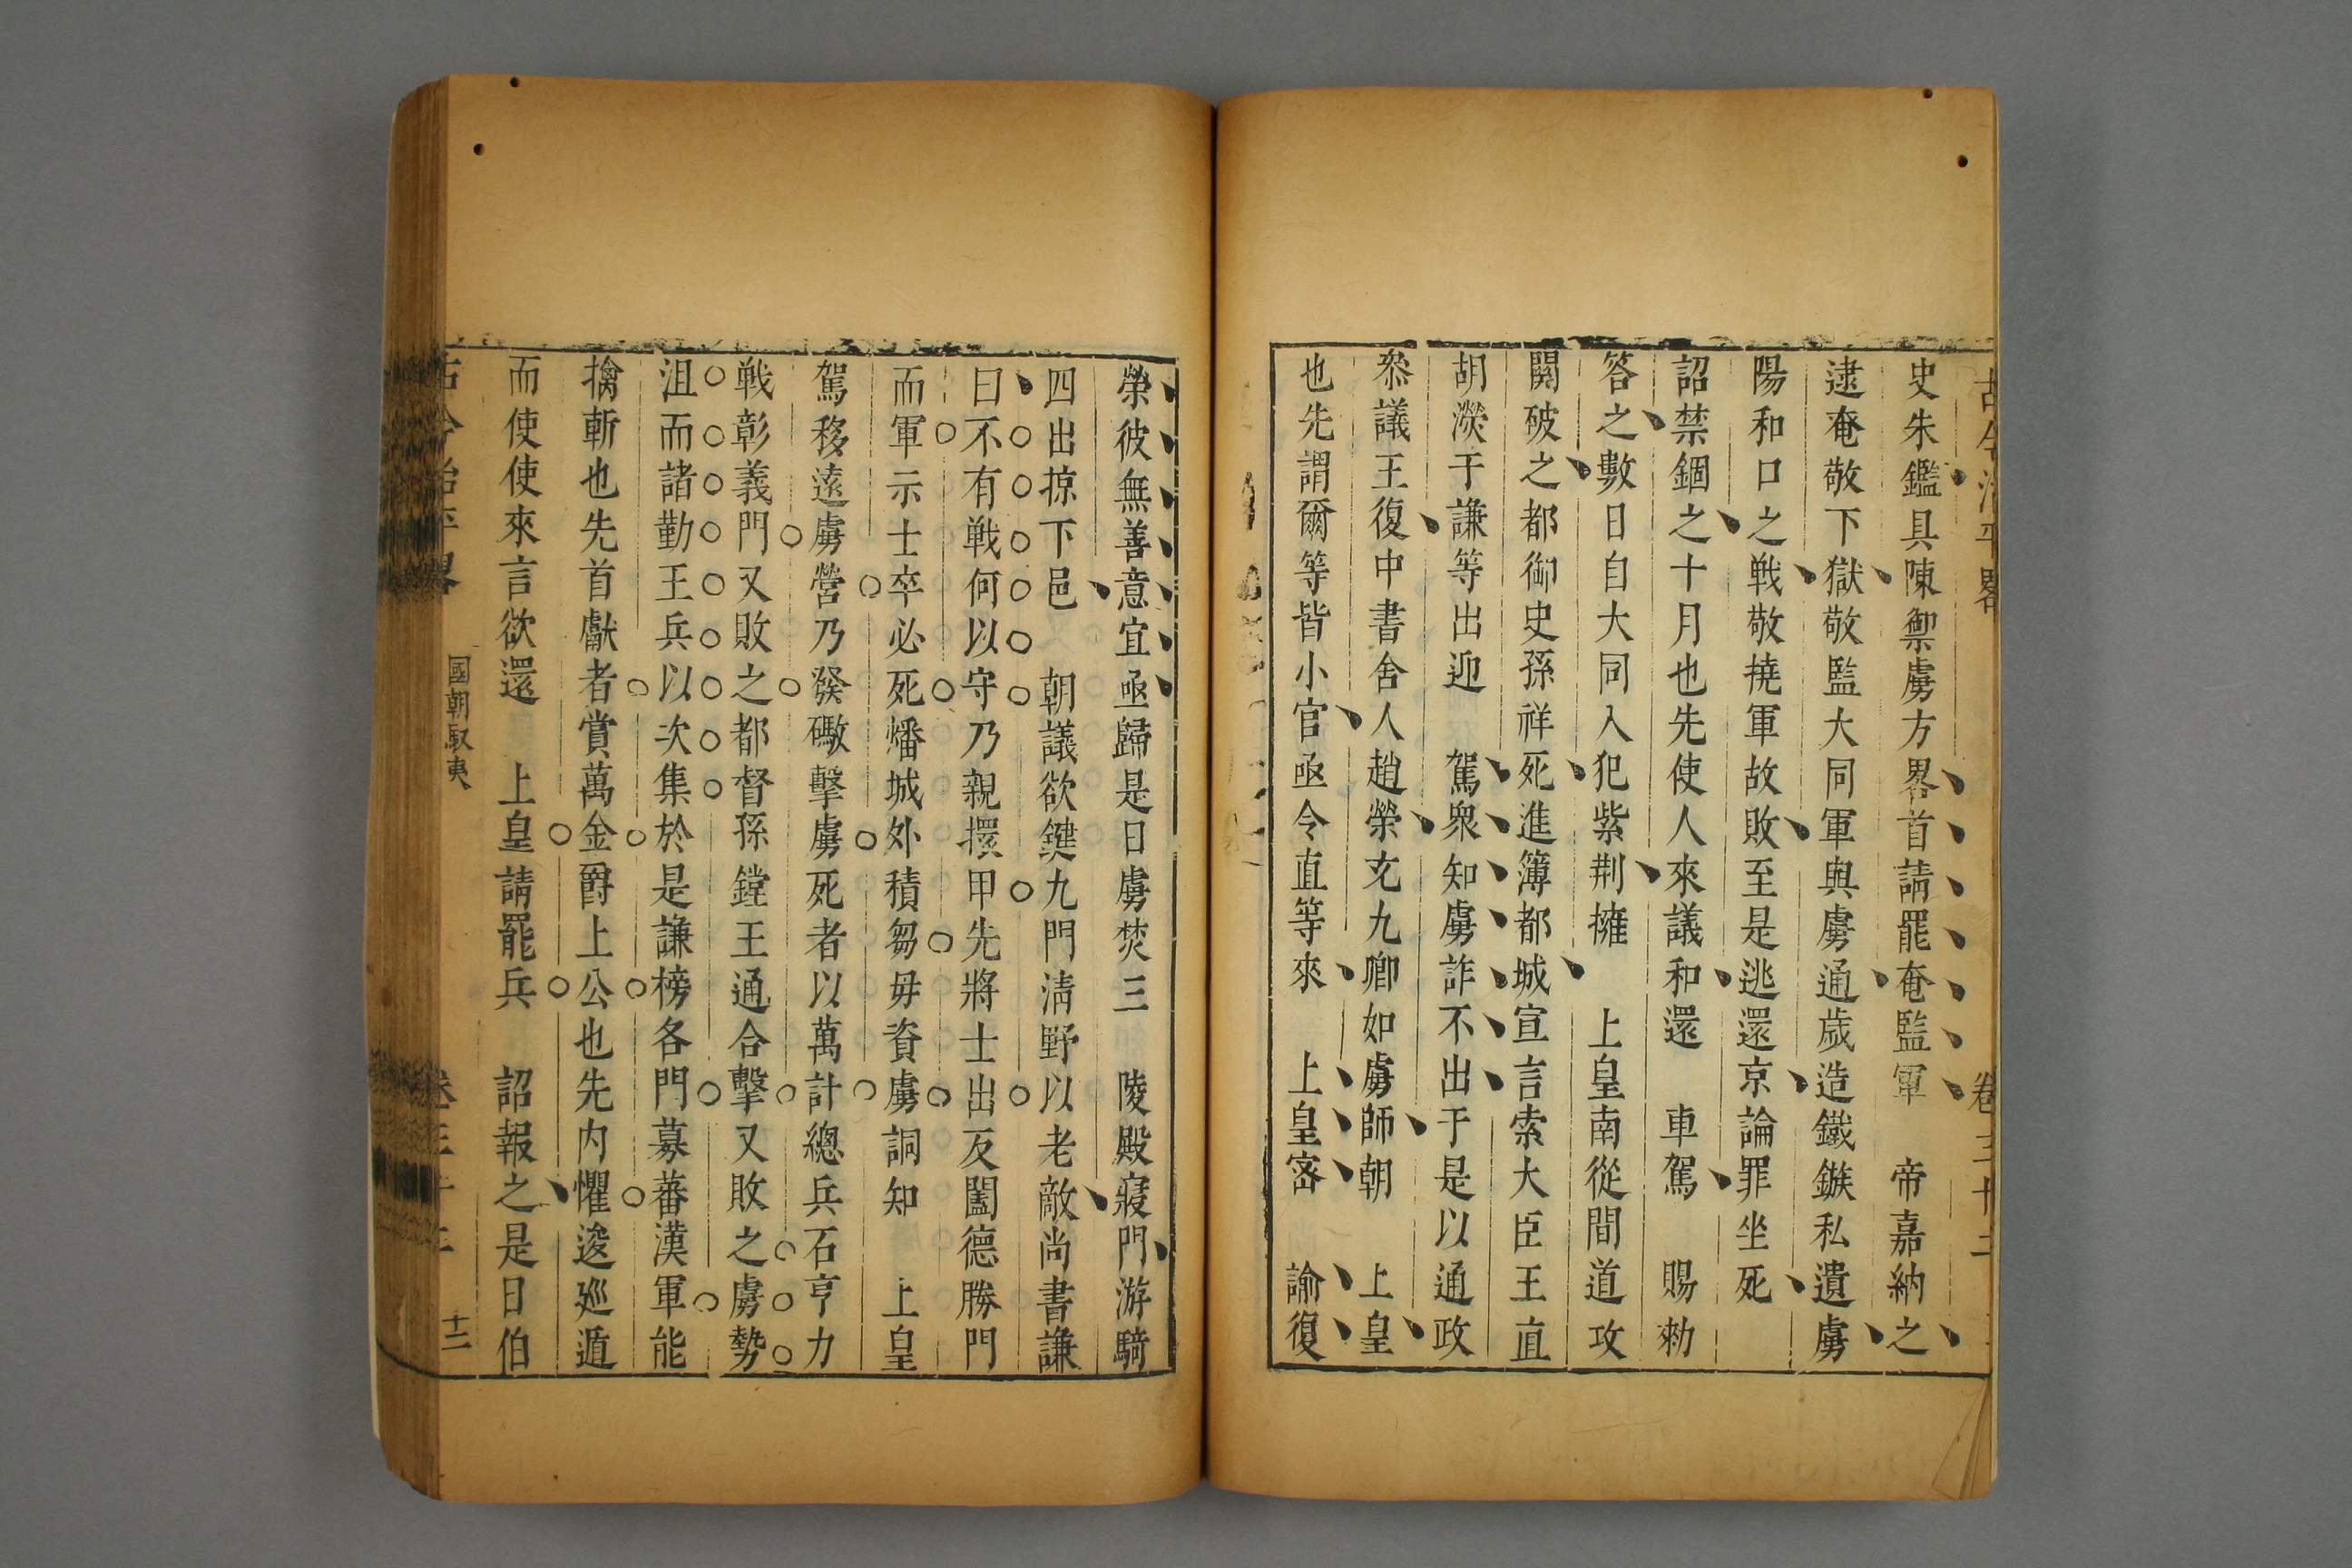 古今治平畧 卷三十三
史朱鑑具陳禦虜方畧首請罷奄監軍 帝嘉納之
逮奄敬下獄敬監大同軍與虜通歲造鐵鏃私遺虜
陽和口之戰敬撓軍故敗至是逃還京論罪坐死
詔禁錮之十月也先使人來議和還 車駕 賜勑
答之數日自大同入犯紫荆擁 上皇南從間道攻
關破之都御史孫祥死進簿都城宣言索大臣王直
胡濙于謙等出迎 駕衆知虜詐不出于是以通政
叅議王復中書舍人趙榮充九卿如虜師朝 上皇
也先謂爾等皆小官亟令直等來 上皇宻 諭復
榮彼無善意宜亟歸是日虜焚三 陵殿寢門游騎
四出掠下邑 朝議欲鍵九門清野以老敵尚書謙
曰不有戰何以守乃親擐甲先將士出反闔德勝門
而軍示士卒必死燔城外積芻毋資虜詗知 上皇
駕移遠虜營乃發礮擊虜死者以萬計總兵石亨力
戰彰義門又敗之都督孫鏜王通合擊又敗之虜勢
沮而諸勤王兵以次集於是謙榜各門募蕃漢軍能
擒斬也先首獻者賞萬金爵上公也先内懼逡廵遁
而使使來言欲還 上皇請罷兵 詔報之是日伯
古今治平畧 國朝馭夷 卷三十三 十二